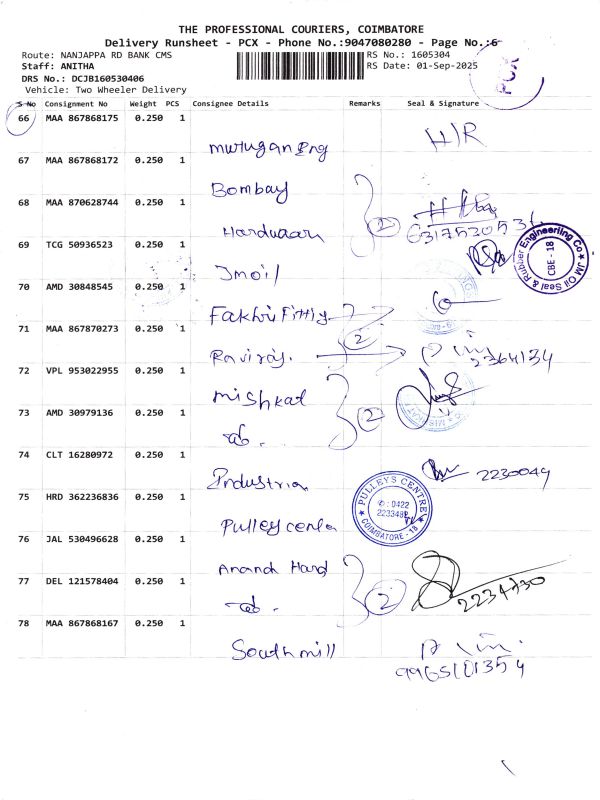 THE PROFESSIONAL COURIERS, COIMBATORE
Delivery Runsheet - PCX - Phone No.:9047080280 - Page No.:6
Route: NANJAPPA RD BANK CMS
RS No.: 1605304
Staff: ANITHA
RS Date: 01-Sep-2025
DRS No.: DCJB160530406
Vehicle: Two Wheeler Delivery
PCX
S No Consignment No Weight PCS Consignee Details Remarks Seal & Signature
66 MAA 867868175 0.250 1
Murugan Eng
67 MAA 867868172 0.250 1
Bombay
68 MAA 870628744 0.250 1
Hardwaar
2
69 TCG 50936523 0.250 1
Jmoil
& Rubber Engineering Co ★ JM Oil Seal
CBE - 18
70 AMD 30848545 0.250 1
Fakhri Fitting
71 MAA 867870273 0.250 1
2
Raviraj.
2364134
72 VPL 953022955 0.250 1
Mishkat
73 AMD 30979136 0.250 1
2
74 CLT 16280972 0.250 1
Industrion
2230049
75 HRD 362236836 0.250 1
Pulley cente
PULLEYS CENTRE
✆ : 0422
COIMBATORE - 18
76 JAL 530496628 0.250 1
Anand Hard
77 DEL 121578404 0.250 1
2
2234730
78 MAA 867868167 0.250 1
Southmill
9965101354